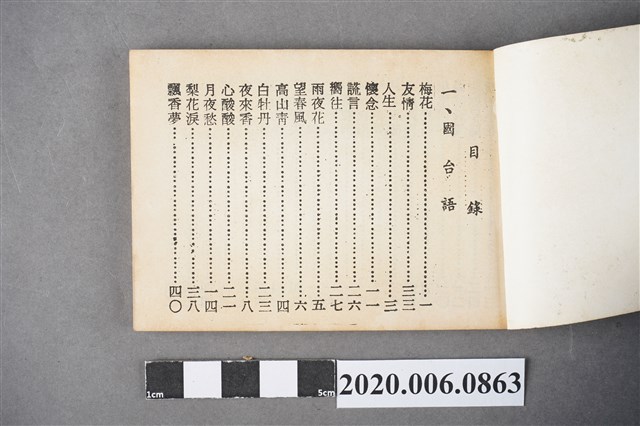 目錄
一、國台語
梅花 一
友情 三三
人生 三
懷念 一一
謊言 二六
嚮往 二七
雨夜花 五
望春風 六
高山青 四
白牡丹 二三
夜來香 八
心酸酸 二一
月夜愁 一四
梨花淚 三八
飄香夢 四〇
1cm 5cm
2020.006.0863